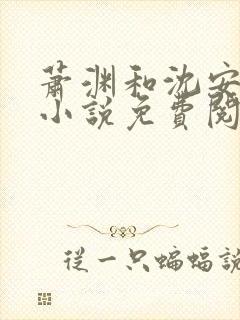 萧渊和沈安
小说免費閱
從一只蝙蝠説